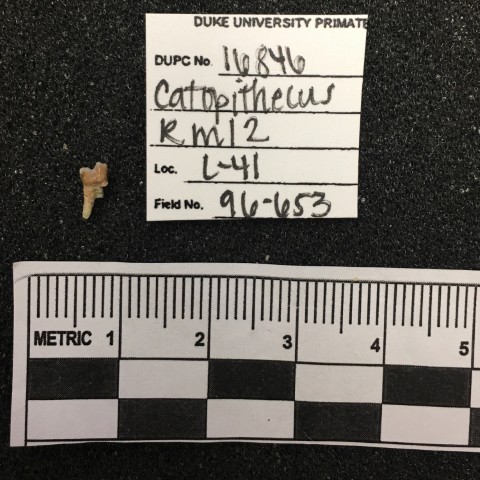 DUKE UNIVERSITY PRIMATE
DUPC No. 16846
Catopithecus
Rm12
Loc. L-41
Field No. 96-653
METRIC 1 2 3 4 5